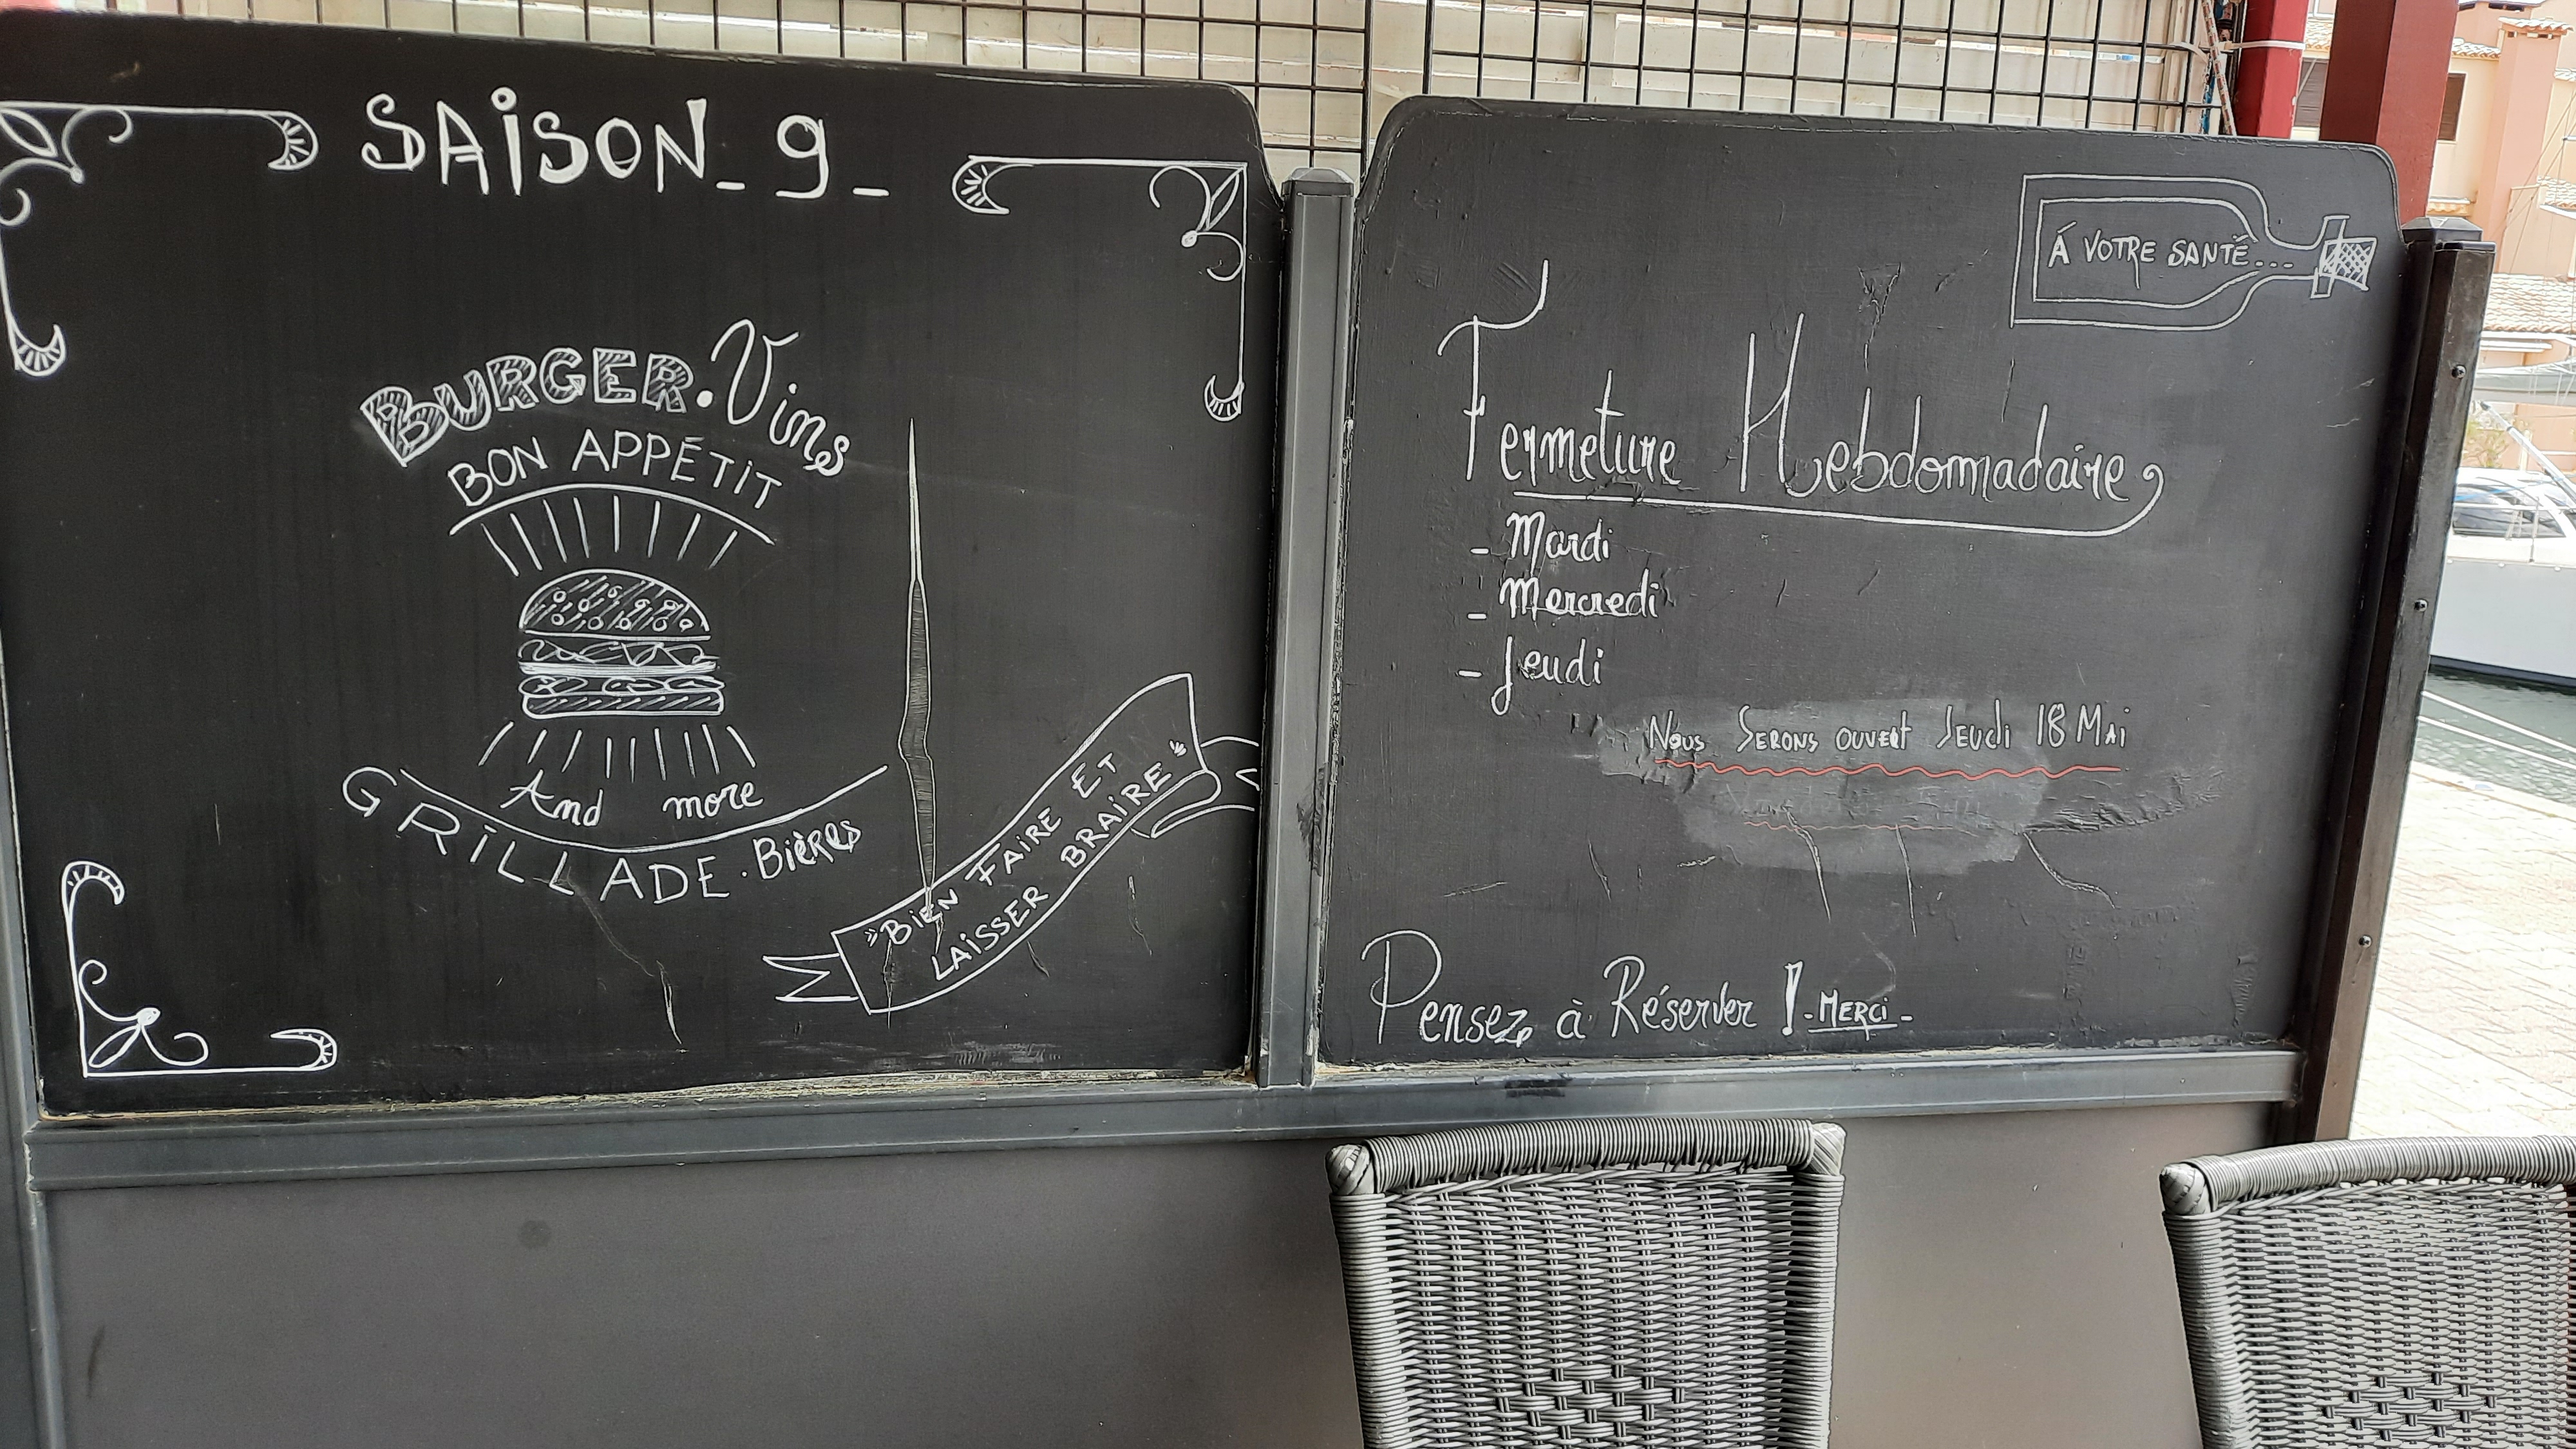 SAISON_9_
BURGER.Vins
BON APPÉTIT
And more
GRILLADE.Bières
"BIEN FAIRE ET
LAISSER BRAIRE"
Á VOTRE SANTÉ...
Fermeture Hebdomadaire
- Mardi
- Mercredi
- Jeudi
Nous SERONS OUVERT JEUDI 18 MAI
Pensez à Réserver ! - MERCI -